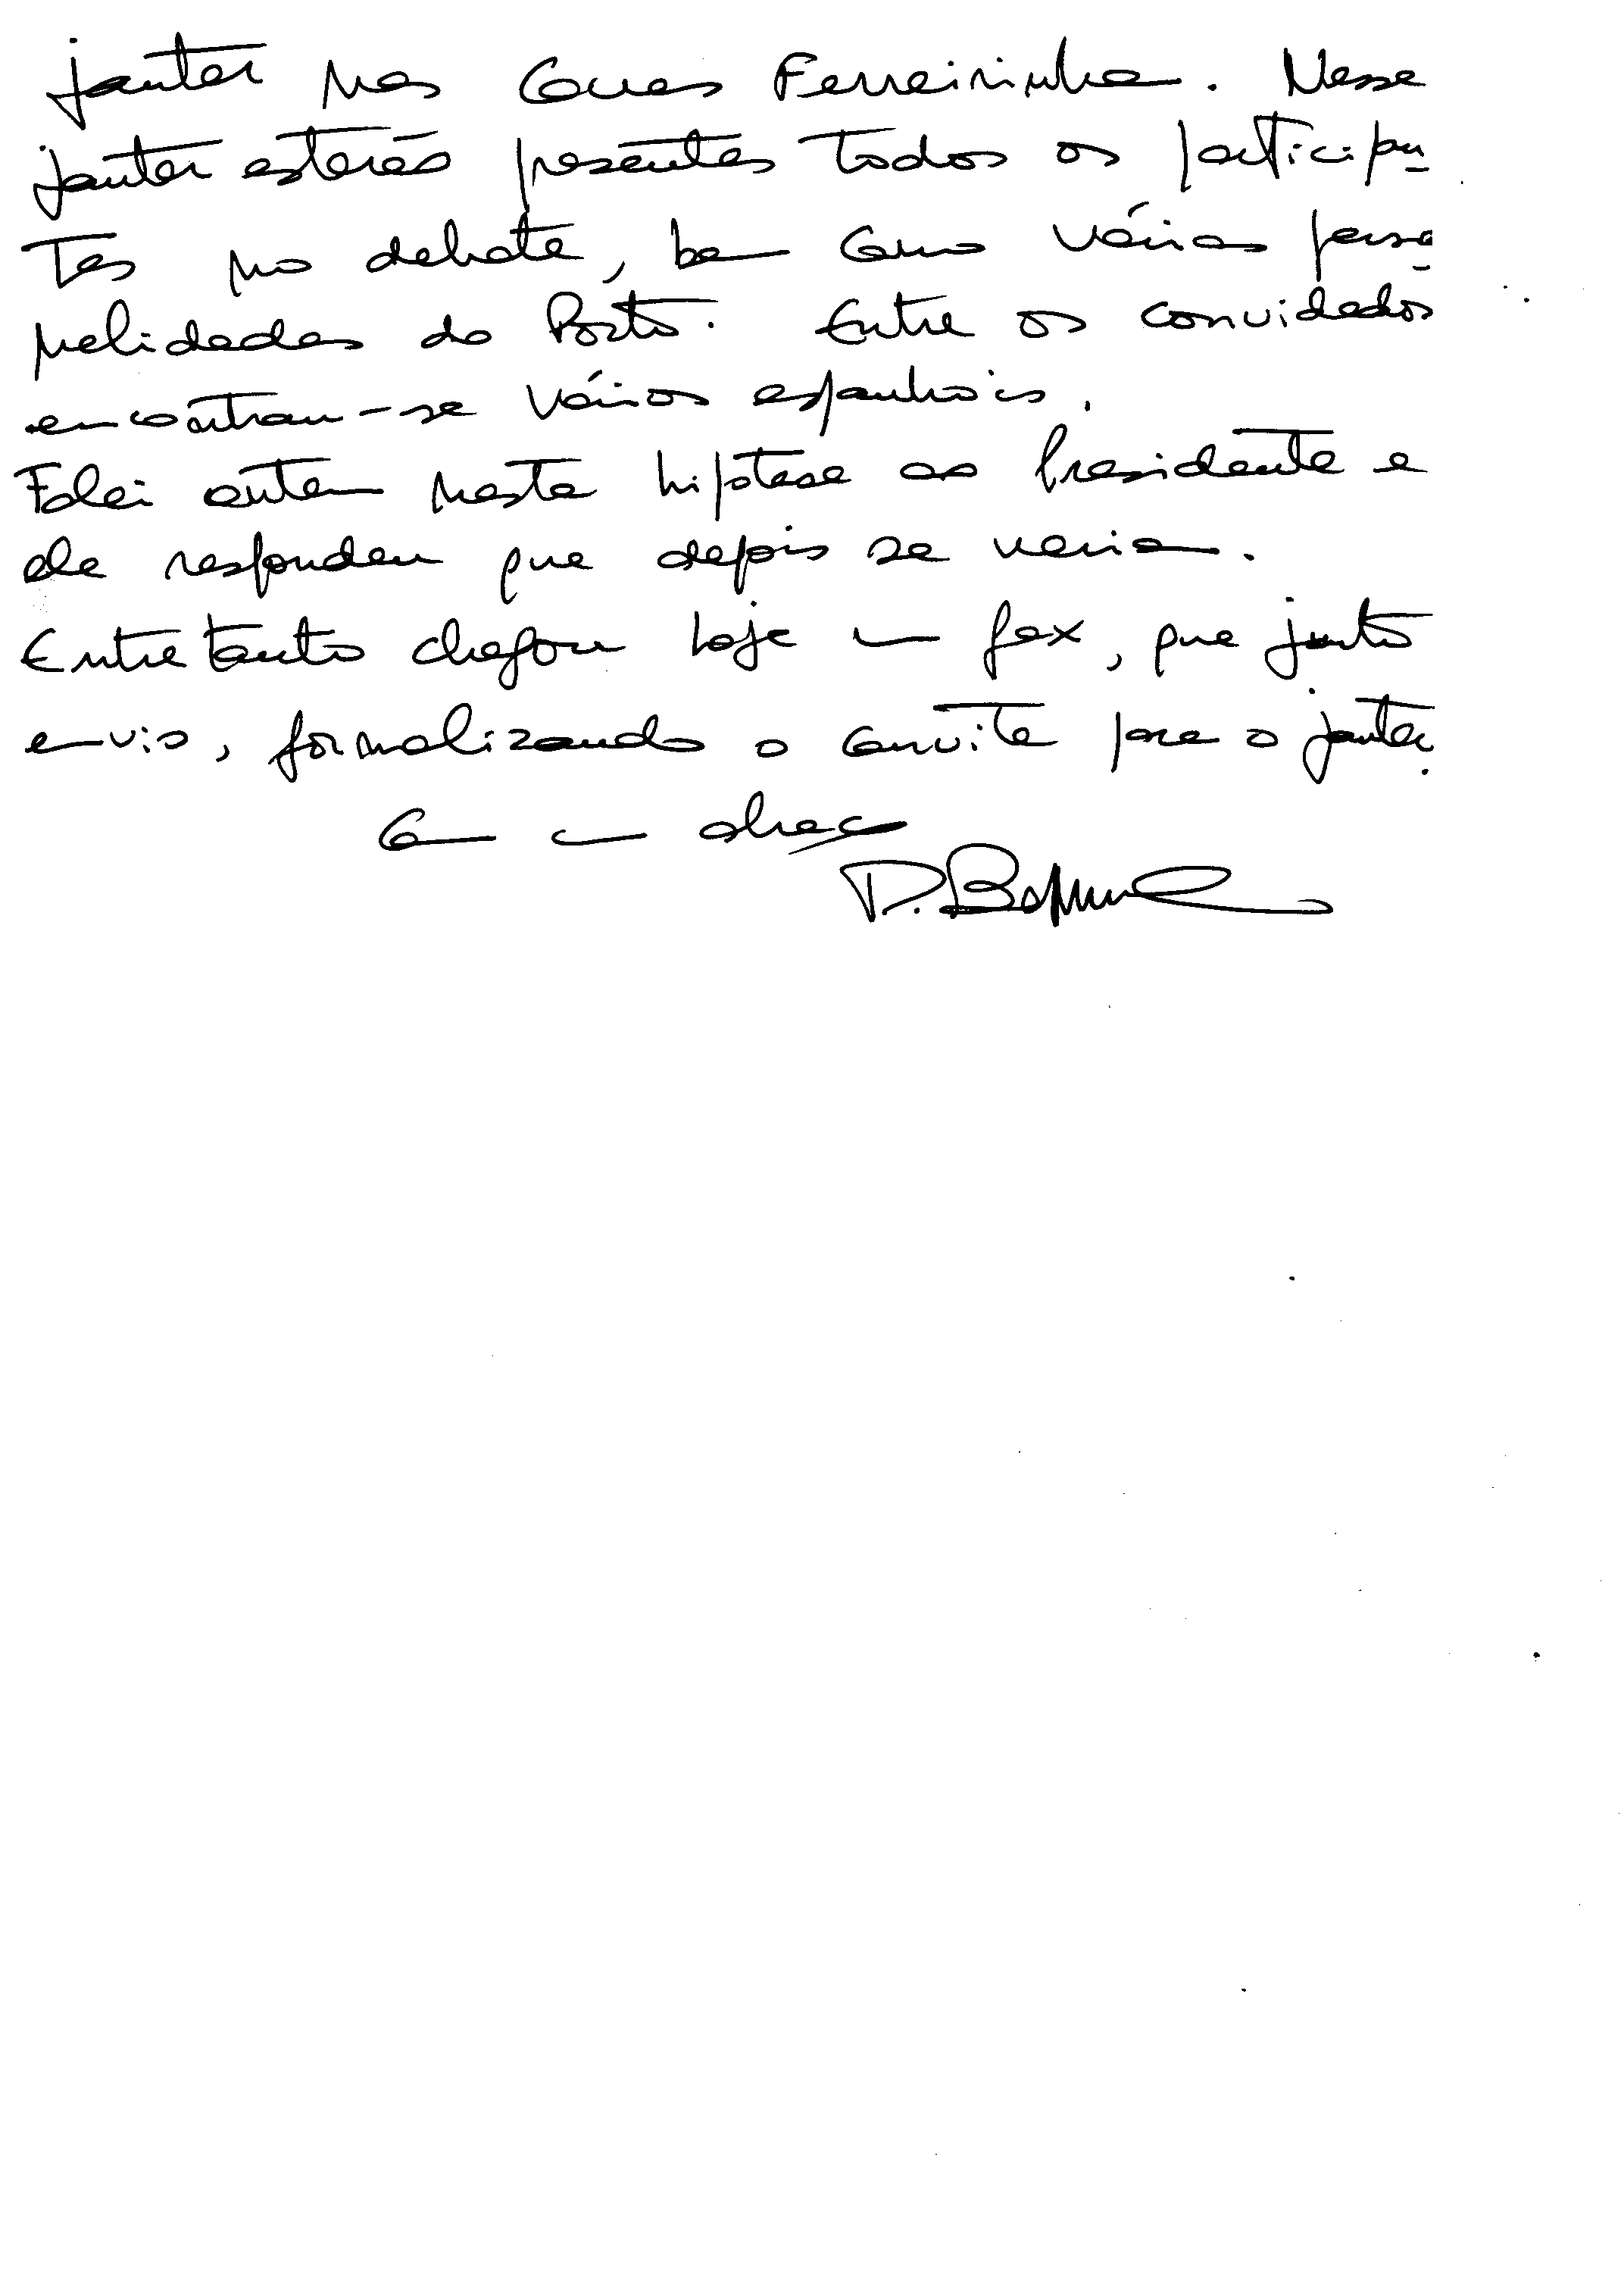 jantar nas Caves Ferreirinha. Nesse
jantar estarão presentes todos os participan-
tes no debate, bem como várias perso-
nalidades do Porto. Entre os convidados
encontram-se vários espanhois.
Falei ontem nesta hipótese ao Presidente e
ele respondeu que depois se veria.
Entretanto chegou hoje um fax, que junto
envio, formalizando o convite para o jantar.
Com um abraço